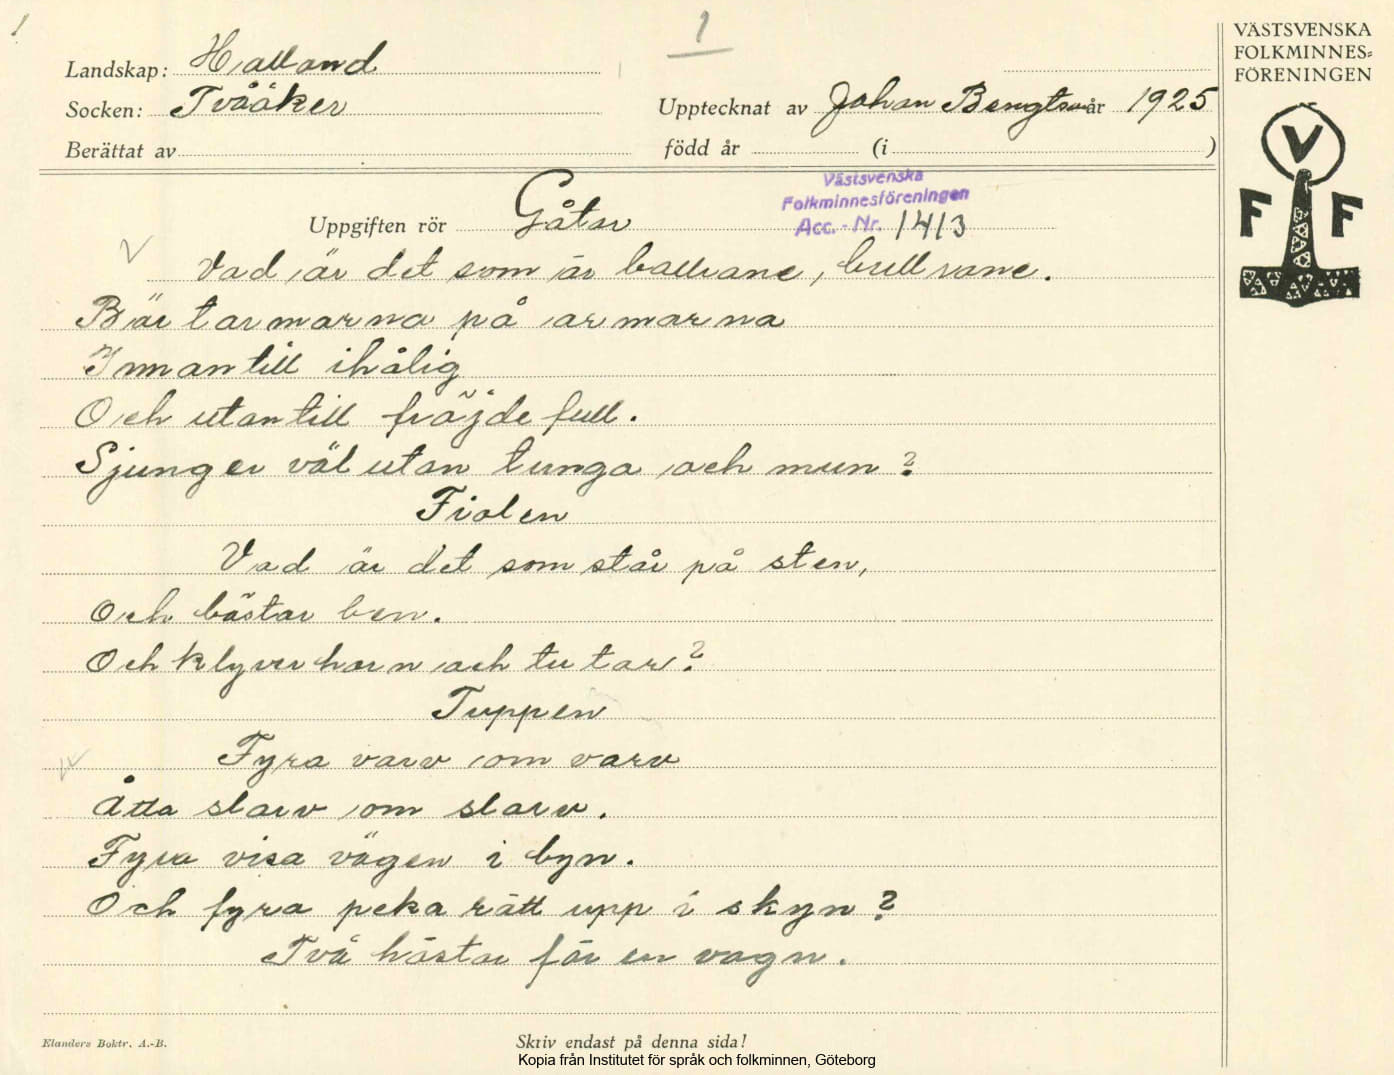 1
1
Landskap: Halland
Socken: Tvååker
Upptecknat av Johan Bengtson år 1925
Berättat av
född år (i )
VÄSTSVENSKA
FOLKMINNES=
FÖRENINGEN
V
F F
Västsvenska
Folkminnesföreningen
Acc.-Nr. 1413
Uppgiften rör Gåtor
Vad är det som är ballrane, bullrane.
Bär tarmarna på armarna
Innantill ihålig
Och utantill fröjdefull.
Sjunger väl utan tunga och mun?
Fiolen
Vad är det som står på sten,
Och bästar ben.
Och klyver horn och tutar?
Tuppen
Fyra varv om varv
Åtta slarv om slarv.
Fyra visa vägen i byn.
Och fyra peka rätt upp i skyn?
Två hästar för en vagn.
Elanders Boktr. A.-B.
Skriv endast på denna sida!
Kopia från Institutet för språk och folkminnen, Göteborg